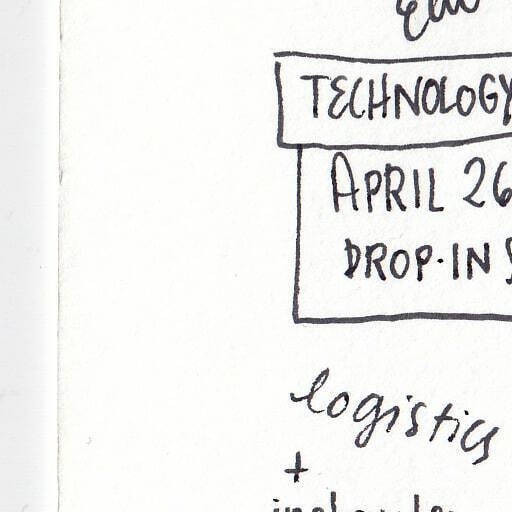 TECHNOLOGY
APRIL 26
DROP-IN
logistics
+